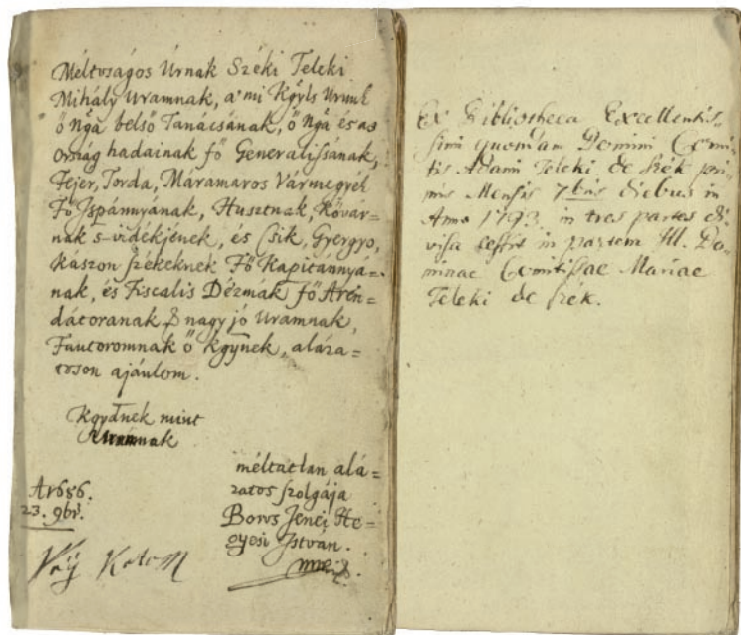 Méltoságos Úrnak Széki Teleki
Mihály Uramnak, a' mi Kgyls Urunk
ő Nga belső Tanácsának, ő Nga és az
ország hadainak fő Generalissának,
Fejer, Torda, Máramaros Vármegyék
Fő Ispánnyának, Husztnak, Kővár=
nak s-vidékjének, és Csik, Gyergyo,
Kászon székeknek Fő Kapitánnyá=
nak, és Fiscalis Dézmák fő Áren=
dátoranak & nagy jó Uramnak,
Fautoromnak ő kgynek, alára=
toson ajánlom.
Kgydnek mint
Uramnak
méltatlan alá=
zatos szolgája
Boros Jenei He=
gyesi István.
A 1686.
23. 9br.
Ex Bibliotheca Excellentis=
simi quondam Domini Comi=
tis Adami Teleki de Szék pri=
mis Mensis 7bris diebus in
Anno 1793. in tres partes di=
visa cessit in partem Ill. Do=
minae Comitissae Mariae
Teleki de Szék.